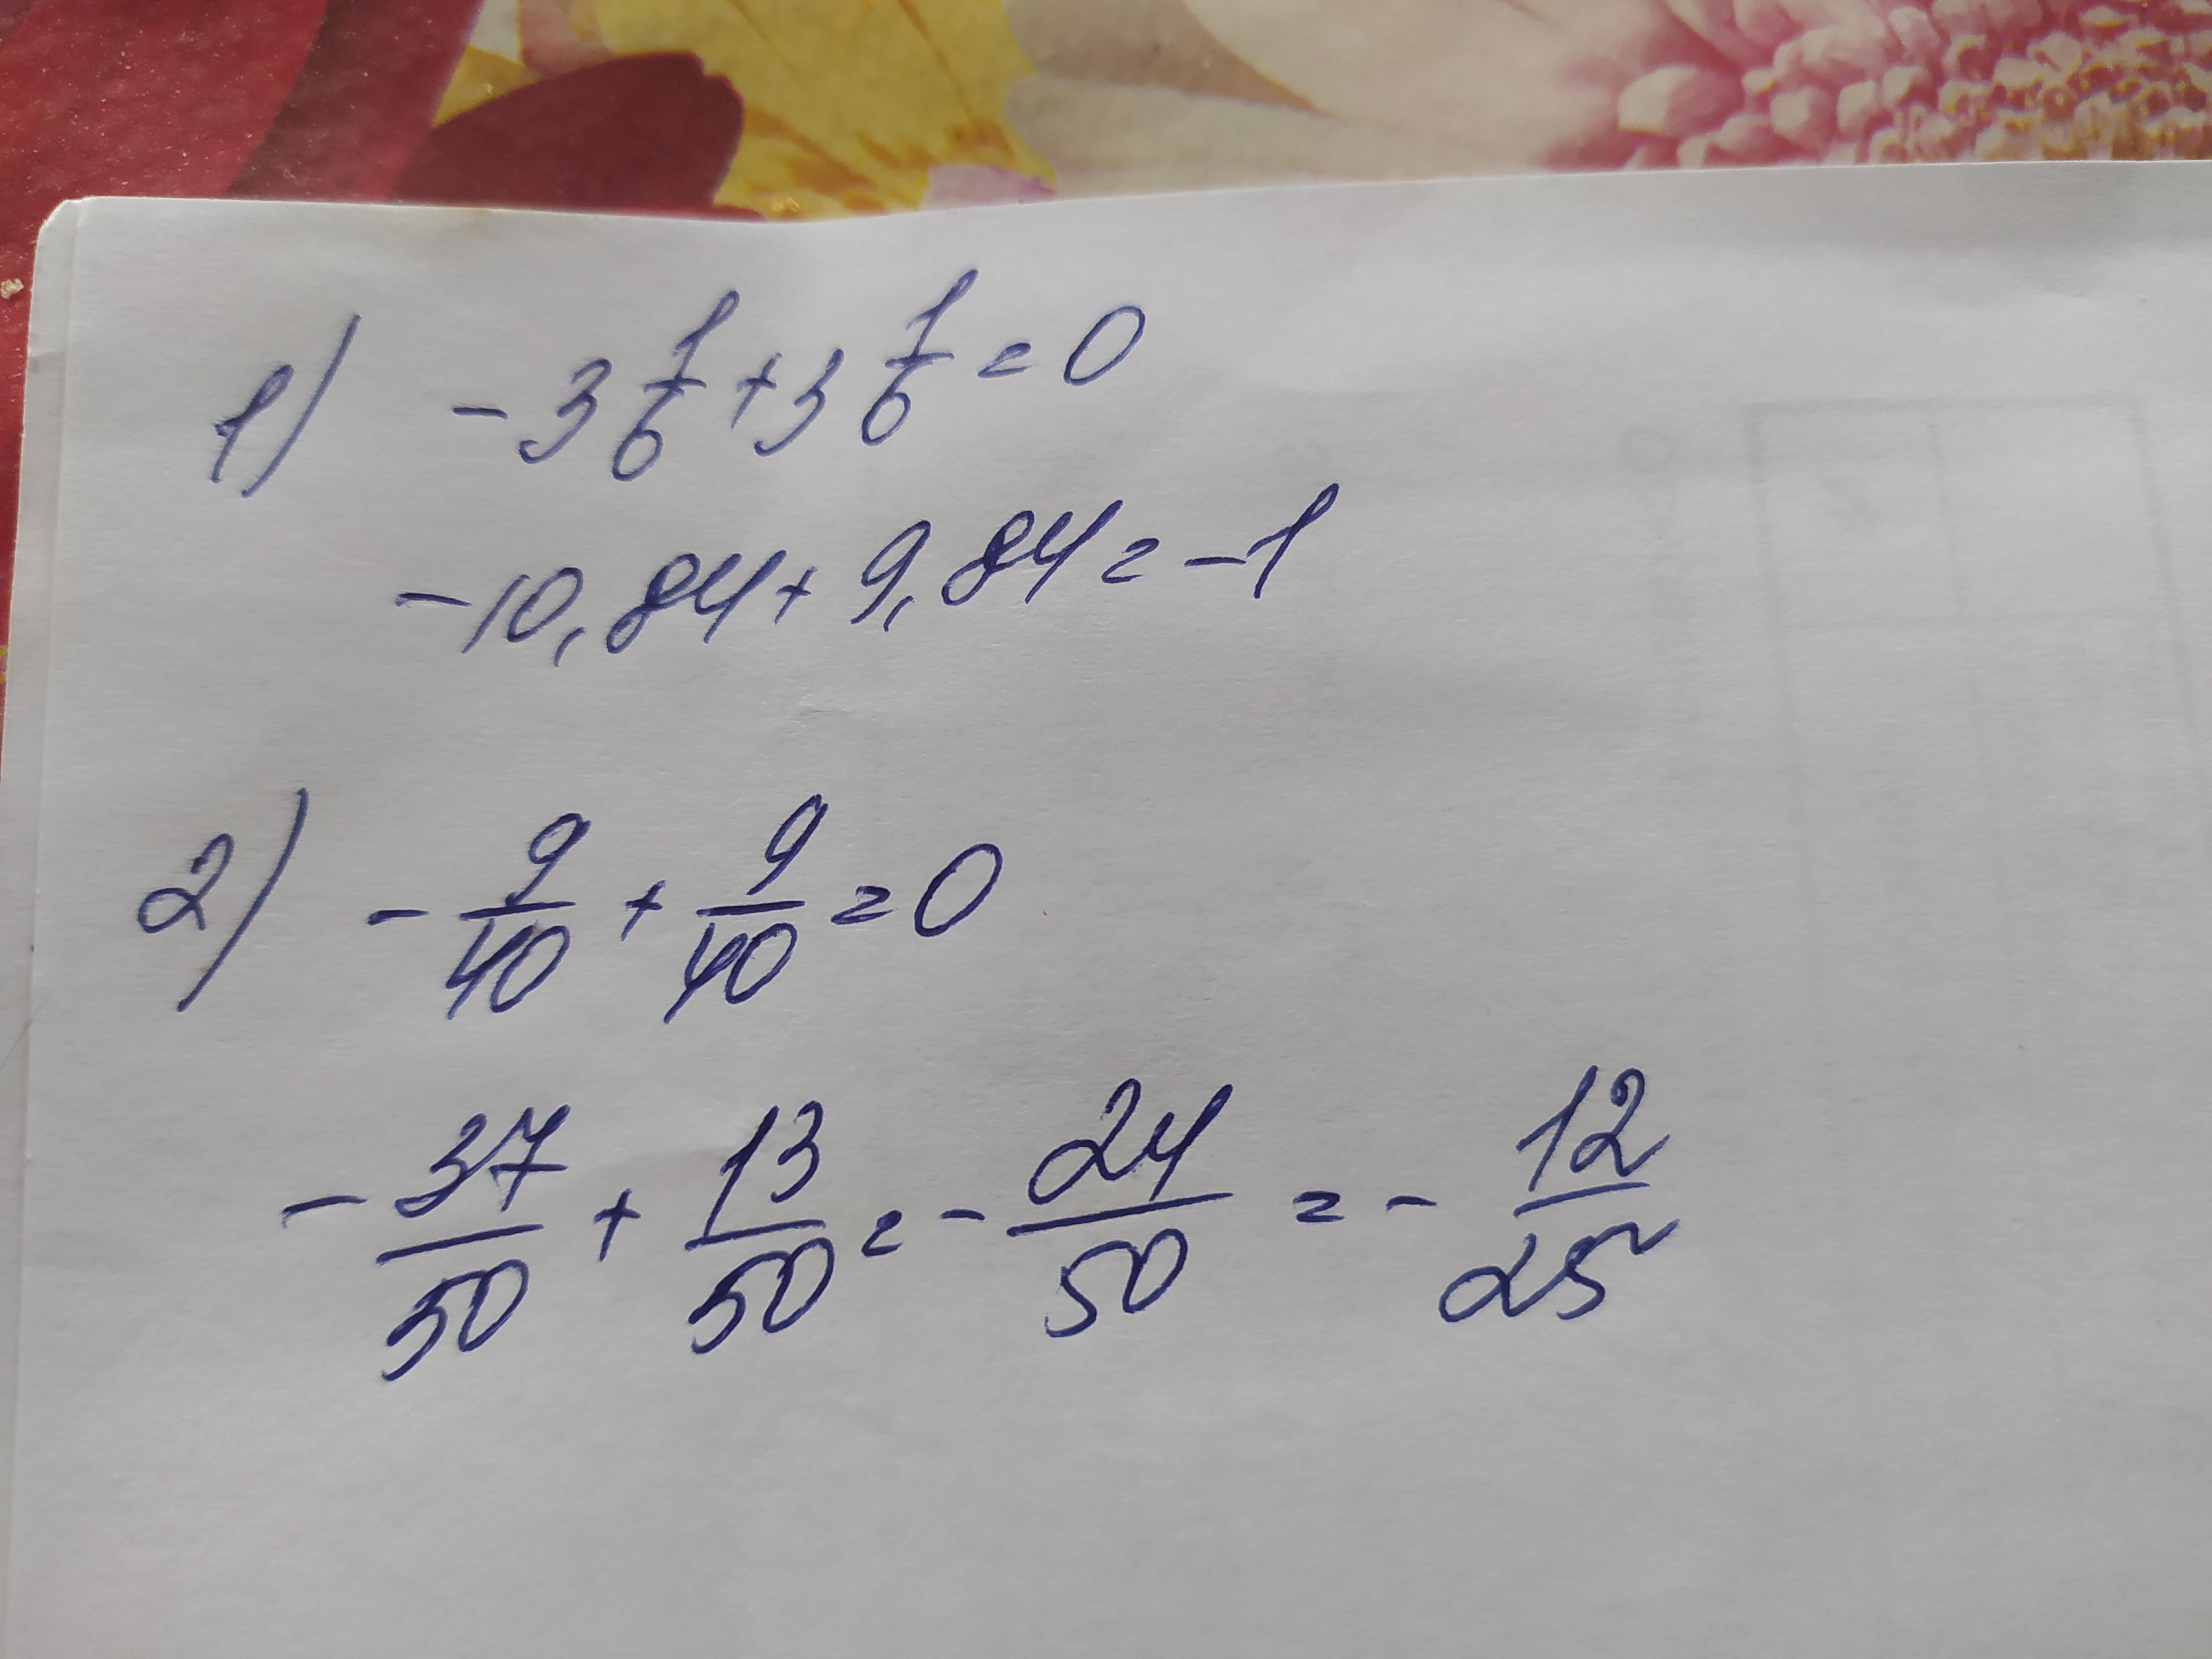 1) -3 1/6 + 3 1/6 = 0
-10,84 + 9,84 = -1
2) - 9/40 + 9/40 = 0
- 37/50 + 13/50 = - 24/50 = - 12/25